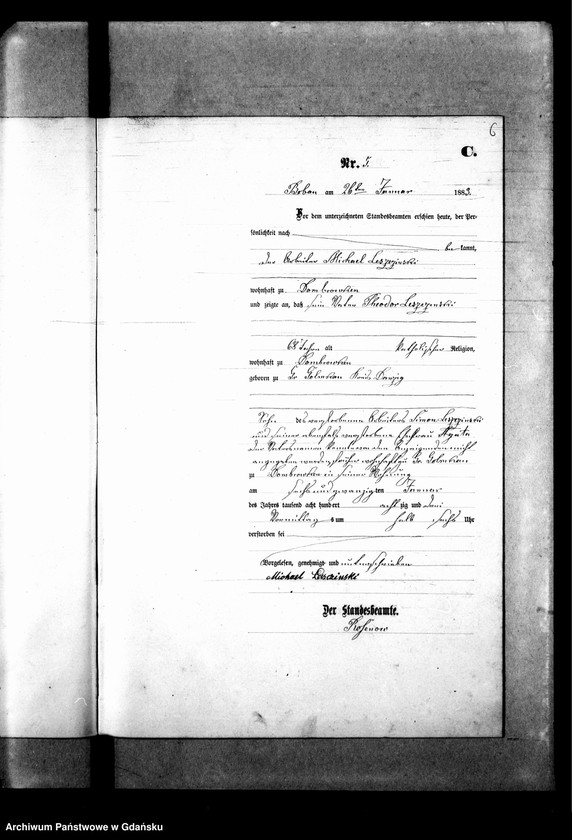 6
C.
Nr. 5.
Bobau am 26ten Januar 1883.
Vor dem unterzeichneten Standesbeamten erschien heute, der Per-
sönlichkeit nach
be kannt,
der Arbeiter Michael Leszczinski
wohnhaft zu Dombrowken
und zeigte an, daß sein Vater Theodor Leszczinski
Jahre alt Katholischer Religion,
wohnhaft zu Dombrowken
geboren zu Gr Golmkau Kreis Danzig
Sohn des verstorbenen Arbeiters Simon Leszczinski
und seiner ebenfalls verstorbene Ehefrau Agata
der Vatersname konnte von dem Anzeigenden nicht
angegeben werden, früher wohnhaft zu Gr. Golmkau
zu Dombrowken in seiner Wohnung
am sechs und zwanzigsten Januar
des Jahres tausend acht hundert acht zig und drei
Vormittag s um halb sechs Uhr
verstorben sei
Vorgelesen, genehmigt und unterschrieben
Michael Lesczinski
Der Standesbeamte.
Archiwum Państwowe w Gdańsku